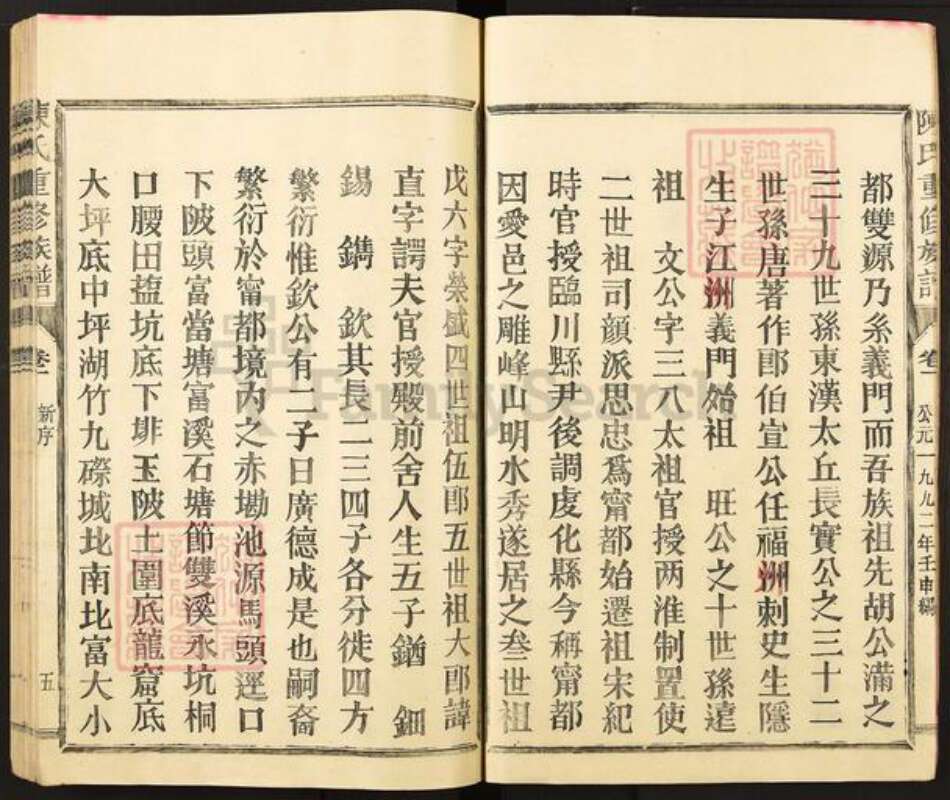 陳氏重修族譜 卷一 公元一九九二年壬申編
都雙源乃系義門而吾族祖先胡公滿之
三十九世孫東漢太丘長實公之三十二
世孫唐著作郎伯宣公任福洲刺史生隱
生子江洲義門始祖 旺公之十世孫遠
祖 文公字三八太祖官授两淮制置使
二世祖司顔派思忠爲甯都始遷祖宋紀
時官授臨川縣尹後調虔化縣今稱甯都
因愛邑之雕峰山明水秀遂居之叁世祖
戊六字榮盛四世祖伍郎五世祖大郎諱
直字諤夫官授殿前舍人生五子鏥 鈿
錫 鐫 欽其長二三四子各分徙四方
繁衍惟欽公有二子曰廣德成是也嗣裔
繁衍於甯都境內之赤墈池源馬頭逕口
下陂頭富當塘富溪石塘節雙溪永坑桐
口腰田𥂁坑底下埱玉陂土圍底龍窟底
大坪底中坪湖竹九磜城北南北富大小
陳氏重修族譜 卷一 新序 五
FamilySearch